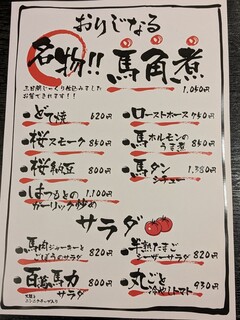 おりじなる
名物!! 馬角煮
三日間じっくり仕込みました
お箸できれます!!
1,050円
どて焼 620円
ローストホース 750円
桜スモーク 850円
馬ホルモンのうま煮 850円
桜納豆 800円
馬タンシチュー 1,380円
はつもとのガーリック炒め 1,100円
サラダ
馬肉ジャーキーと
ごぼうのサラダ 820円
半熟たまご
シーザーサラダ 820円
百萬馬力
サラダ 800円
丸ごと
冷やしトマト 430円